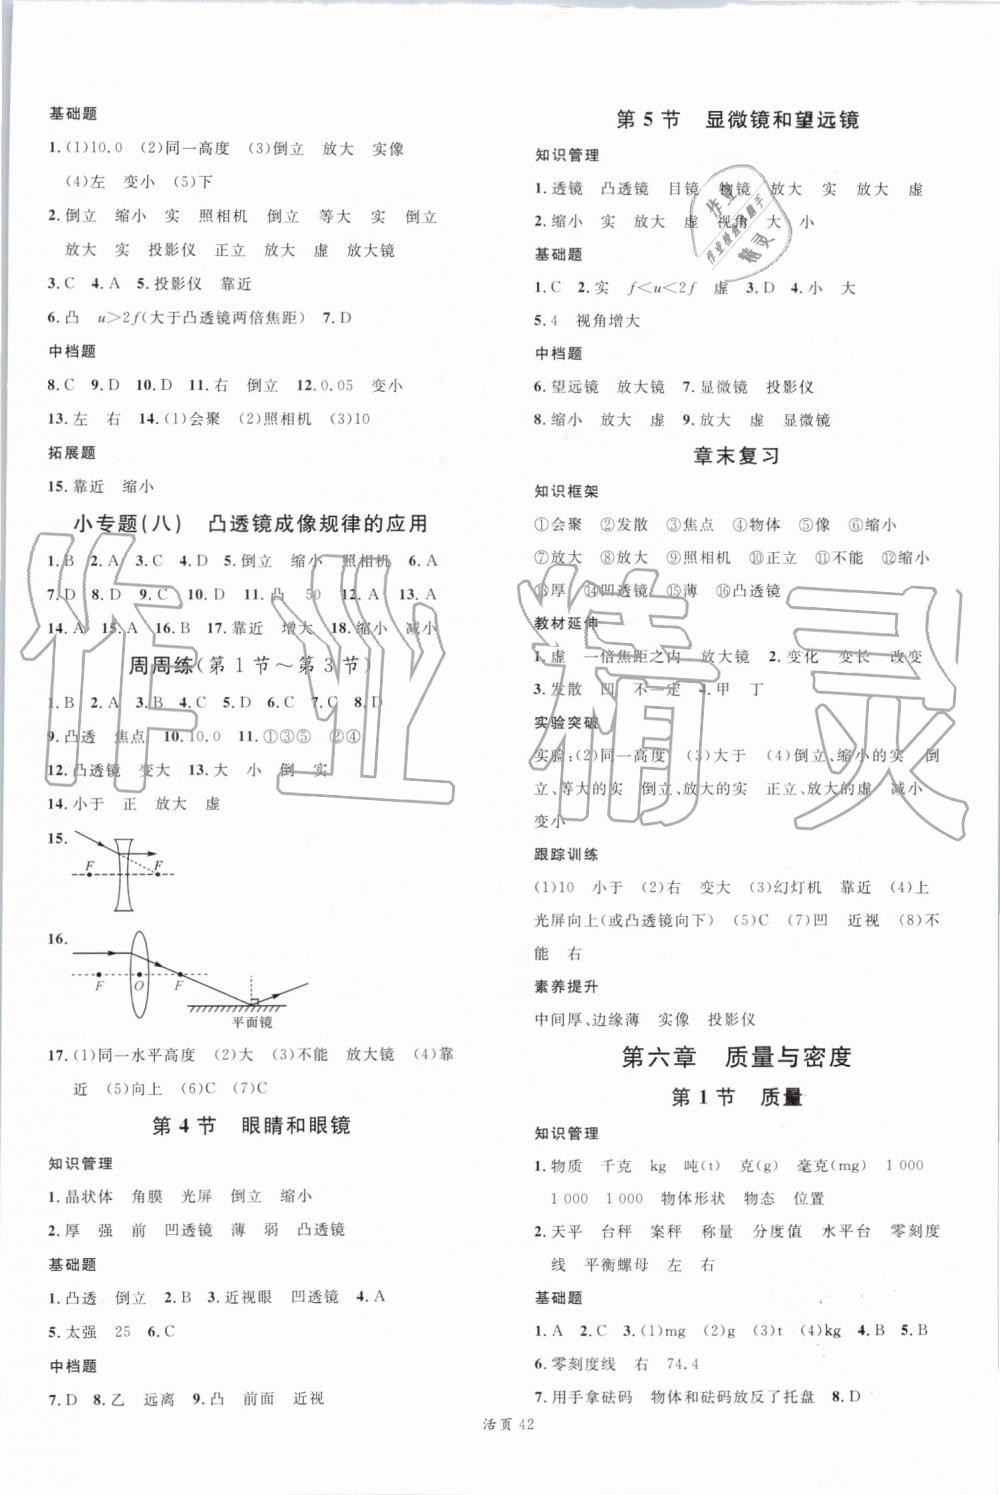 基础题
1.(1)10.0 (2)同一高度 (3)倒立 放大 实像
(4)左 变小 (5)下
2.倒立 缩小 实 照相机 倒立 等大 实 倒立
放大 实 投影仪 正立 放大 虚 放大镜
3.C 4.A 5.投影仪 靠近
6.凸 u>2f(大于凸透镜两倍焦距) 7.D
中档题
8.C 9.D 10.D 11.右 倒立 12.0.05 变小
13.左 右 14.(1)会聚 (2)照相机 (3)10
拓展题
15.靠近 缩小
小专题(八) 凸透镜成像规律的应用
1.B 2.A 3.C 4.D 5.倒立 缩小 照相机 6.A
7.D 8.D 9.C 10.D 11.凸 50 12.A 13.A
14.A 15.A 16.B 17.靠近 增大 18.缩小 减小
周周练(第1节～第3节)
1.B 2.A 3.B 4.C 5.D 6.C 7.C 8.D
9.凸透 焦点 10.10.0 11.①③⑤ ②④
12.凸透镜 变大 13.大 小 倒 实
14.小于 正 放大 虚
15.
F F
16.
F O F
平面镜
17.(1)同一水平高度 (2)大 (3)不能 放大镜 (4)靠
近 (5)向上 (6)C (7)C
第4节 眼睛和眼镜
知识管理
1.晶状体 角膜 光屏 倒立 缩小
2.厚 强 前 凹透镜 薄 弱 凸透镜
基础题
1.凸透 倒立 2.B 3.近视眼 凹透镜 4.A
5.太强 25 6.C
中档题
7.D 8.乙 远离 9.C 凸 前面 近视
第5节 显微镜和望远镜
知识管理
1.透镜 凸透镜 目镜 物镜 放大 实 放大 虚
2.缩小 实 放大 虚 视角 大 小
基础题
1.C 2.实 f<u<2f 虚 3.D 4.小 大
5.4 视角增大
中档题
6.望远镜 放大镜 7.显微镜 投影仪
8.缩小 放大 虚 9.放大 虚 显微镜
章末复习
知识框架
①会聚 ②发散 ③焦点 ④物体 ⑤像 ⑥缩小
⑦放大 ⑧放大 ⑨照相机 ⑩正立 ⑪不能 ⑫缩小
⑬厚 ⑭凹透镜 ⑮薄 ⑯凸透镜
教材延伸
1.虚 一倍焦距之内 放大镜 2.变化 变长 改变
3.发散 凹 不一定 4.甲 丁
实验突破
实验:(2)同一高度 (3)大于 (4)倒立、缩小的实 倒
立、等大的实 倒立、放大的实 正立、放大的虚 减小
变小
跟踪训练
(1)10 小于 (2)右 变大 (3)幻灯机 靠近 (4)上
光屏向上(或凸透镜向下) (5)C (7)凹 近视 (8)不
能 右
素养提升
中间厚、边缘薄 实像 投影仪
第六章 质量与密度
第1节 质量
知识管理
1.物质 千克 kg 吨(t) 克(g) 毫克(mg) 1 000
1 000 1 000 物体形状 物态 位置
2.天平 台秤 案秤 称量 分度值 水平台 零刻度
线 平衡螺母 左 右
基础题
1.A 2.C 3.(1)mg (2)g (3)t (4)kg 4.B 5.B
6.零刻度线 右 74.4
7.用手拿砝码 物体和砝码放反了托盘 8.D
活页 42
作业精灵
作业
作业检查小助手
精灵